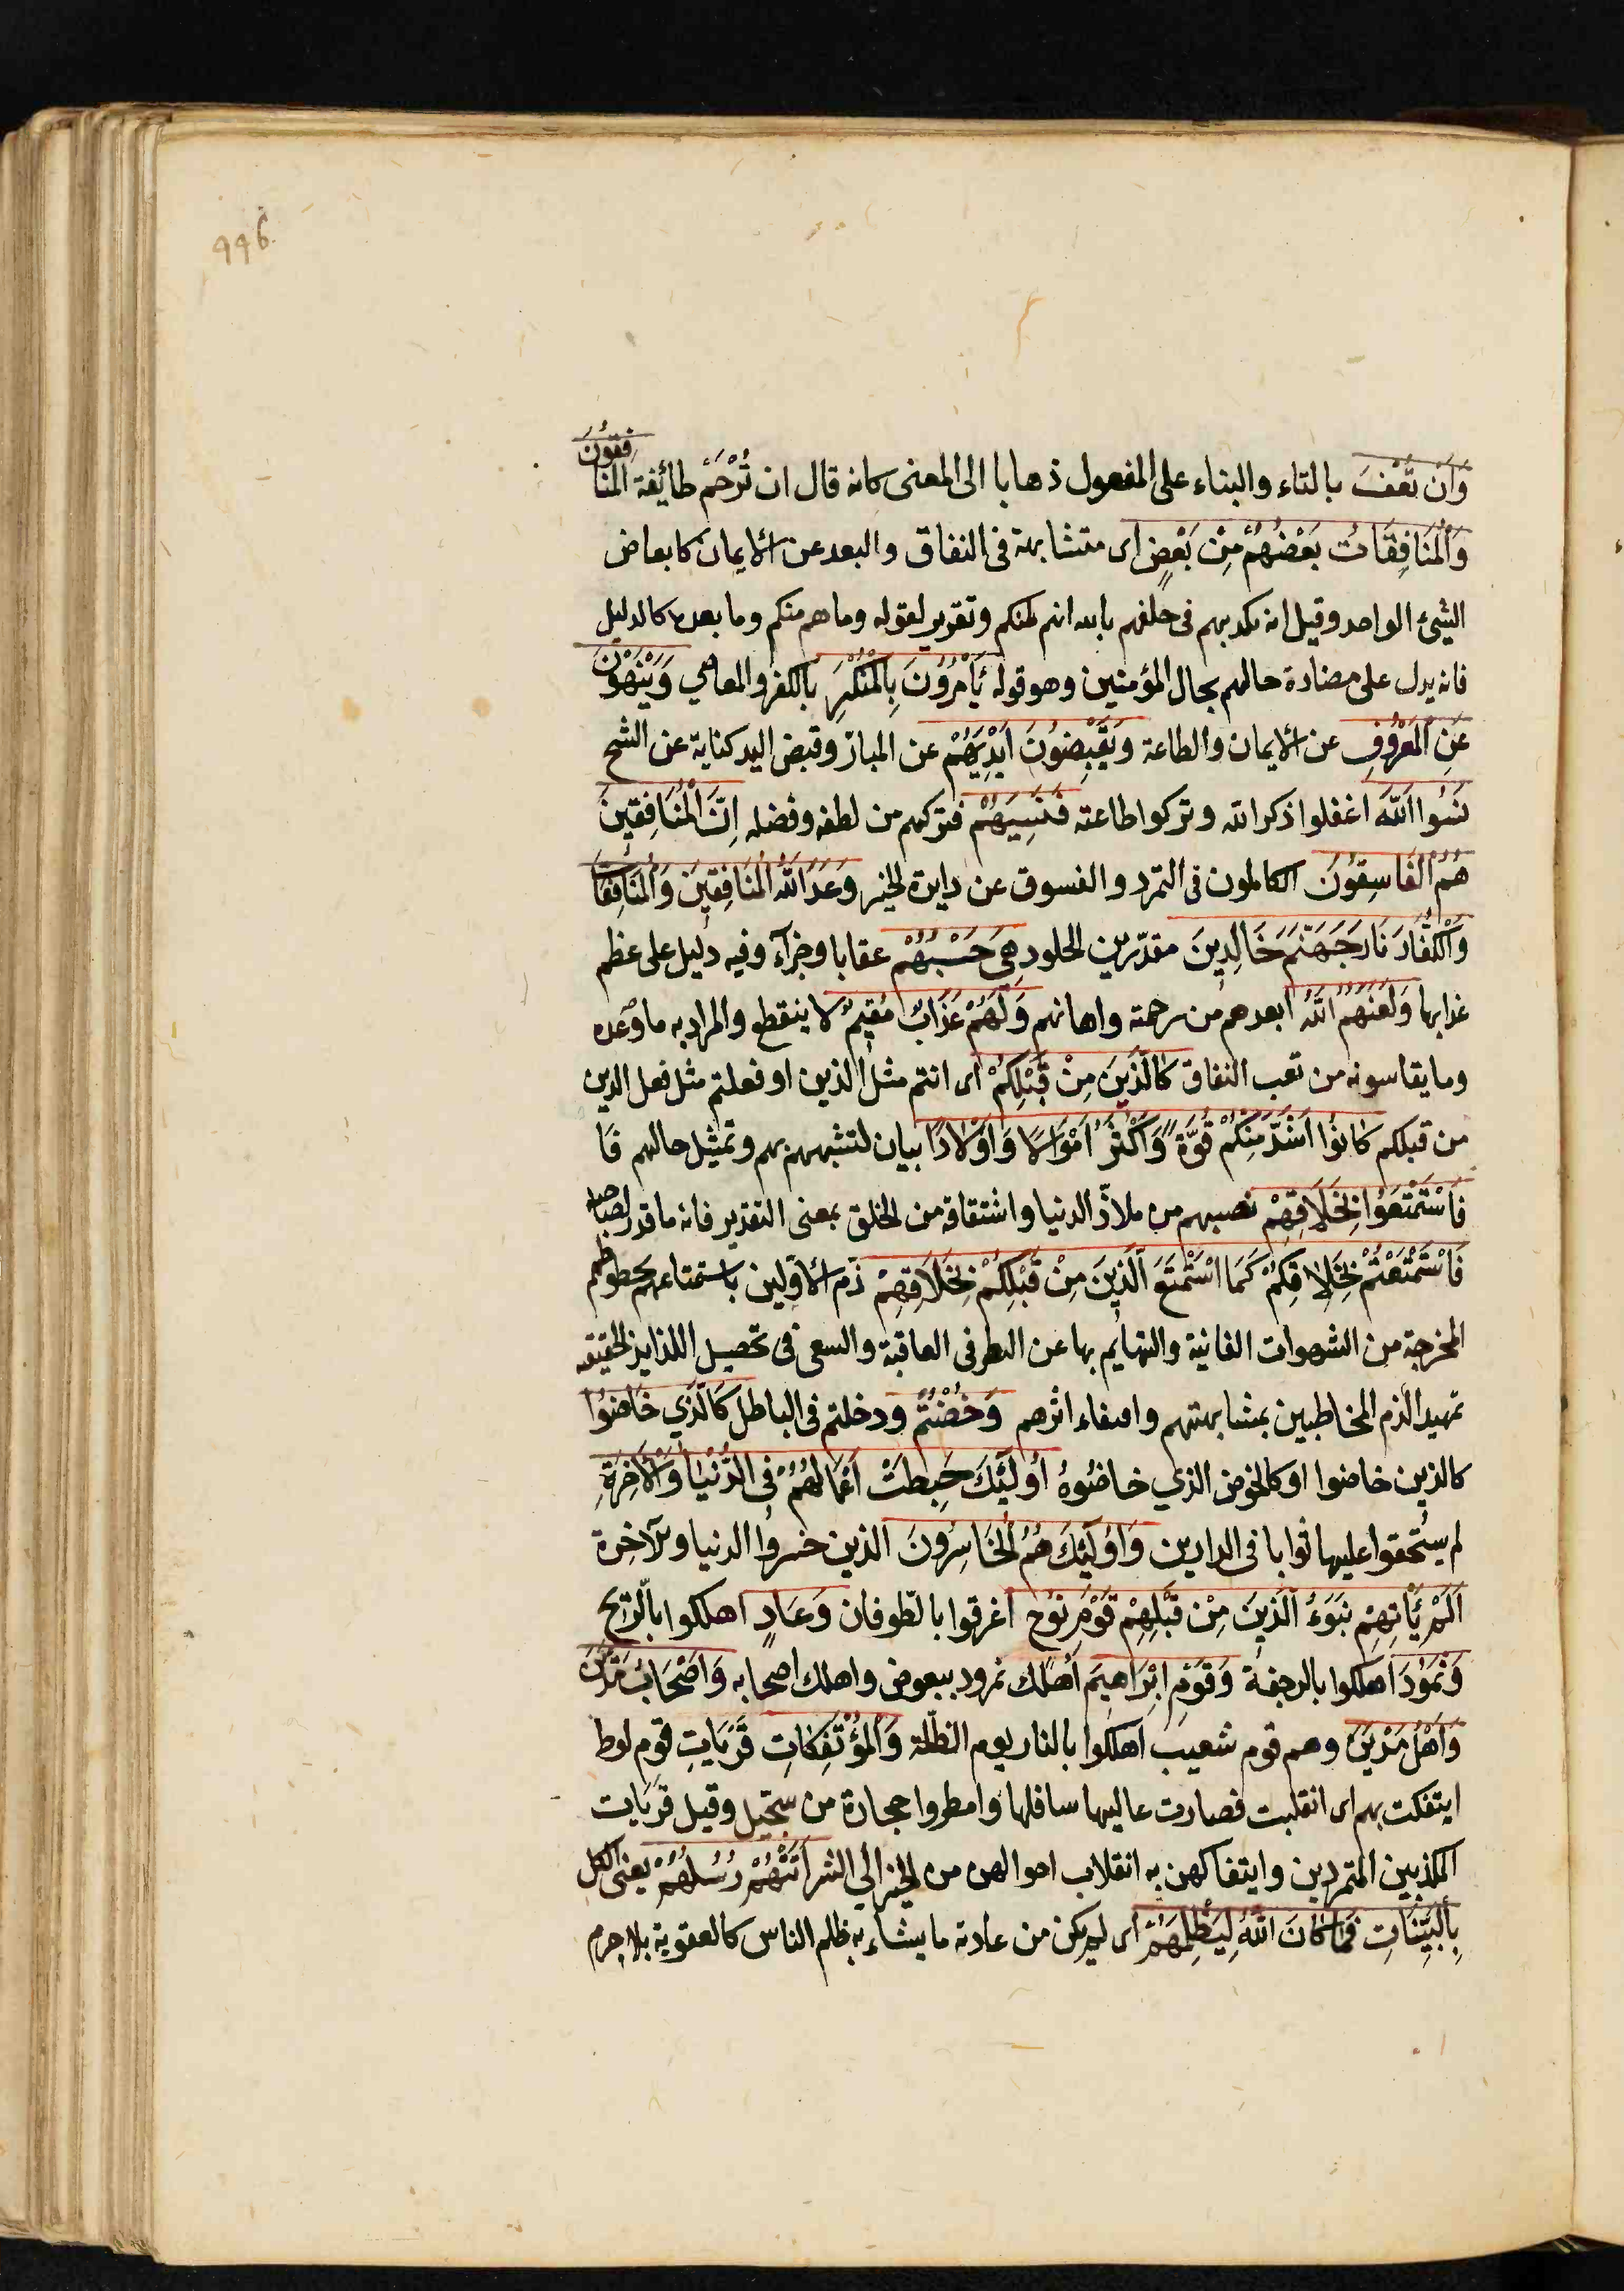 996
وَاَنْ تُعْفَ بالتاء والبناء على المفعول ذهابا الى المعنى كانه قال ان تُرْحَمْ طائفة المُنَافِقُونَ
وَالْمُنَافِقَاتُ بَعْضُهُمْ مِنْ بَعْضٍ اى متشابهة فى النفاق والبعد عن الايمان كابعاض
الشيئ الواحد وقيل انه تكذيبهم فى حلفهم بالله انهم لمنكم وتقرير لقوله وما هم منكم وما بعده كالدليل
فانه يدل على مضادة حالهم بحال المؤمنين وهو قوله يَأْمُرُونَ بِالْمُنْكَرِ بالكفر والمعاصي وَيَنْهَوْنَ
عَنِ الْمَعْرُوفِ عن الايمان والطاعة وَيَقْبِضُونَ اَيْدِيَهُمْ عن المبارّ وقبض اليد كناية عن الشح
نَسُوا اللّٰهَ اغفلوا ذكر الله وتركوا طاعته فَنَسِيَهُمْ فتركهم من لطفه وفضله اِنَّ الْمُنَافِقِينَ
هُمُ الْفَاسِقُونَ الكاملون فى التمرد والفسوق عن دايرة الخير وَعَدَ اللّٰهُ الْمُنَافِقِينَ وَالْمُنَافِقَاتِ
وَالْكُفَّارَ نَارَ جَهَنَّمَ خَالِدِينَ مقدّرين الخلود هِىَ حَسْبُهُمْ عقابا وجزآء وفيه دليل على عظم
عذابها وَلَعَنَهُمُ اللّٰهُ ابعدهم من رحمته واهانهم وَلَهُمْ عَذَابٌ مُقِيمٌ لا ينقطع والمراد به ما وعده
وما يقاسونه من تعب النفاق كَالَّذِينَ مِنْ قَبْلِكُمْ اى انتم مثل الذين او فعلتم مثل فعل الذين
من قبلكم كَانُوا اَشَدَّ مِنْكُمْ قُوَّةً وَاَكْثَرَ اَمْوَالًا وَاَوْلَادًا بيان لتشبيههم بهم وتمثيل حالهم فَا
فَاسْتَمْتَعُوا بِخَلَاقِهِمْ نصيبهم من ملاذّ الدنيا واشتقاقه من الخلق بمعنى التقدير فانه ما قدر لصاحبه
فَاسْتَمْتَعْتُمْ بِخَلَاقِكُمْ كَمَا اسْتَمْتَعَ الَّذِينَ مِنْ قَبْلِكُمْ بِخَلَاقِهِمْ ذم الاولين باستمتاعهم بحظوظهم
المخرجة من الشهوات الفانية والتهايم بها عن النظر فى العاقبة والسعى فى تحصيل اللذايذ الحقيقه
تمهيدا لذم المخاطبين بمشابهتهم واقتفاء اثرهم وَخُضْتُمْ ودخلتم فى الباطل كَالَّذِي خَاضُوا
كالذين خاضوا او كالخوض الذي خاضوه اُولٰئِكَ حَبِطَتْ اَعْمَالُهُمْ فِى الدُّنْيَا وَالْاٰخِرَةِ
لم يستحقوا عليها ثوابا فى الدارين وَاُولٰئِكَ هُمُ الْخَاسِرُونَ الذين خسروا الدنيا والآخرة
اَلَمْ يَأْتِهِمْ نَبَؤُ الَّذِينَ مِنْ قَبْلِهِمْ قَوْمِ نُوحٍ اغرقوا بالطّوفان وَعَادٍ اهلكوا بالرّيح
وَثَمُودَ اهلكوا بالرجفة وَقَوْمِ اِبْرَاهِيمَ اهلك نمرود ببعوض واهلك اصحابه وَاَصْحَابِ مَدْيَنَ
وَاَهْلِ مَدْيَنَ وهم قوم شعيب اهلكوا بالنار يوم الظلّة وَالْمُؤْتَفِكَاتِ قَرَيَاتِ قوم لوط
ايتفكت بهم اى انقلبت فصارت عاليها سافلها وامطروا حجارة من سجّيل وقيل قريات
المكذبين المتمردين وايتفاكهن به انقلاب احوالهن من الخير الى الشر اَتَتْهُمْ رُسُلُهُمْ يعنى الكل
بِالْبَيِّنَاتِ فَمَا كَانَ اللّٰهُ لِيَظْلِمَهُمْ اى لم يكن من عادته ما يشابه ظلم الناس كالعقوبة بلا جرم